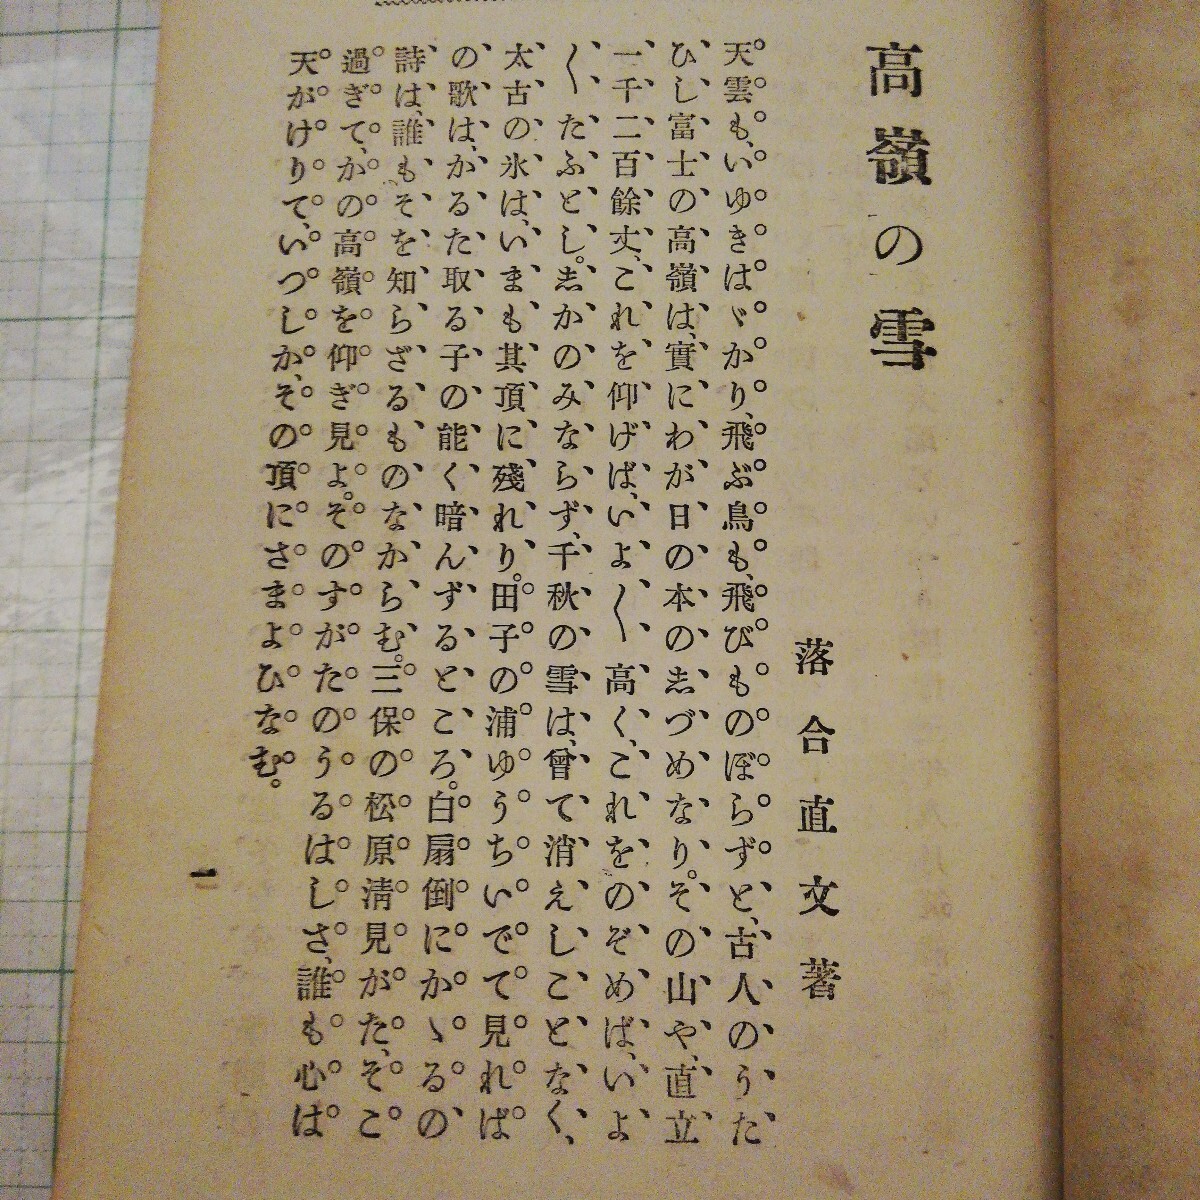 高嶺の雪
落合直文著
天雲も、いゆきはゞかり、飛ぶ鳥も、飛びものぼらずと、古人のうた
ひし富士の高嶺は、實にわが日の本のしづめなり。その山や、直立
一千二百餘丈、これを仰げば、いよ〱高く、これをのぞめば、いよ
〱たふとし。しかのみならず、千秋の雪は、曾て消えしことなく、
太古の氷は、いまも其頂に殘れり。田子の浦ゆうちいでて見れば
の歌は、かるた取る子の能く暗んずるところ。白扇倒にかゝるの
詩は、誰もそを知らざるものなからむ。三保の松原淸見がた、そこ
過ぎて、かの高嶺を仰ぎ見よ。そのすがたのうるはしさ、誰も心は
天がけりて、いつしか、その頂にさまよひなむ。
一